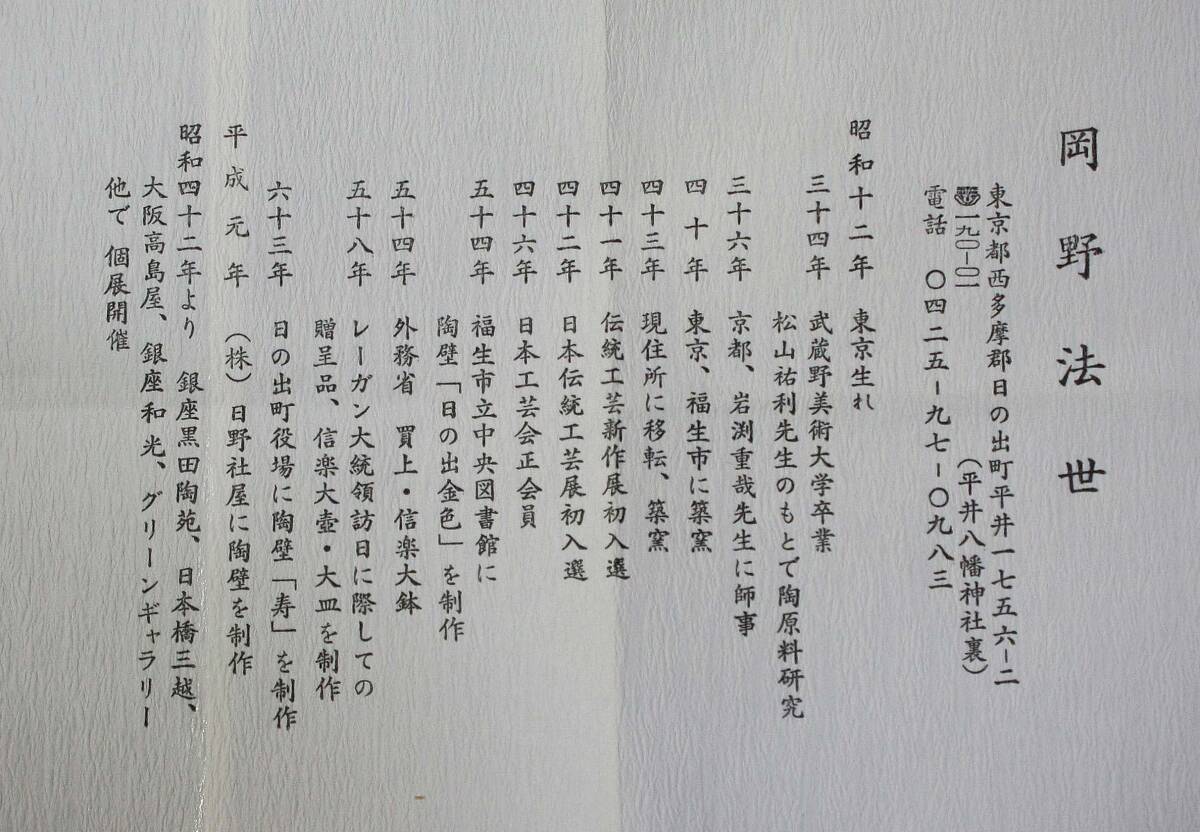 岡野法世
東京都西多摩郡日の出町平井一七五六−二
（平井八幡神社裏）
一九〇−〇一
電話 〇四二五−九七−〇九八三
昭和十二年 東京生れ
三十四年 武蔵野美術大学卒業
松山祐利先生のもとで陶原料研究
三十六年 京都、岩渕重哉先生に師事
四十年 東京、福生市に築窯
四十三年 現住所に移転、築窯
四十一年 伝統工芸新作展初入選
四十二年 日本伝統工芸展初入選
四十六年 日本工芸会正会員
五十四年 福生市立中央図書館に
陶壁「日の出金色」を制作
五十四年 外務省 買上・信楽大鉢
五十八年 レーガン大統領訪日に際しての
贈呈品、信楽大壺・大皿を制作
六十三年 日の出町役場に陶壁「寿」を制作
平成元年 （株）日野社屋に陶壁を制作
昭和四十二年より 銀座黒田陶苑、日本橋三越、
大阪高島屋、銀座和光、グリーンギャラリー
他で 個展開催